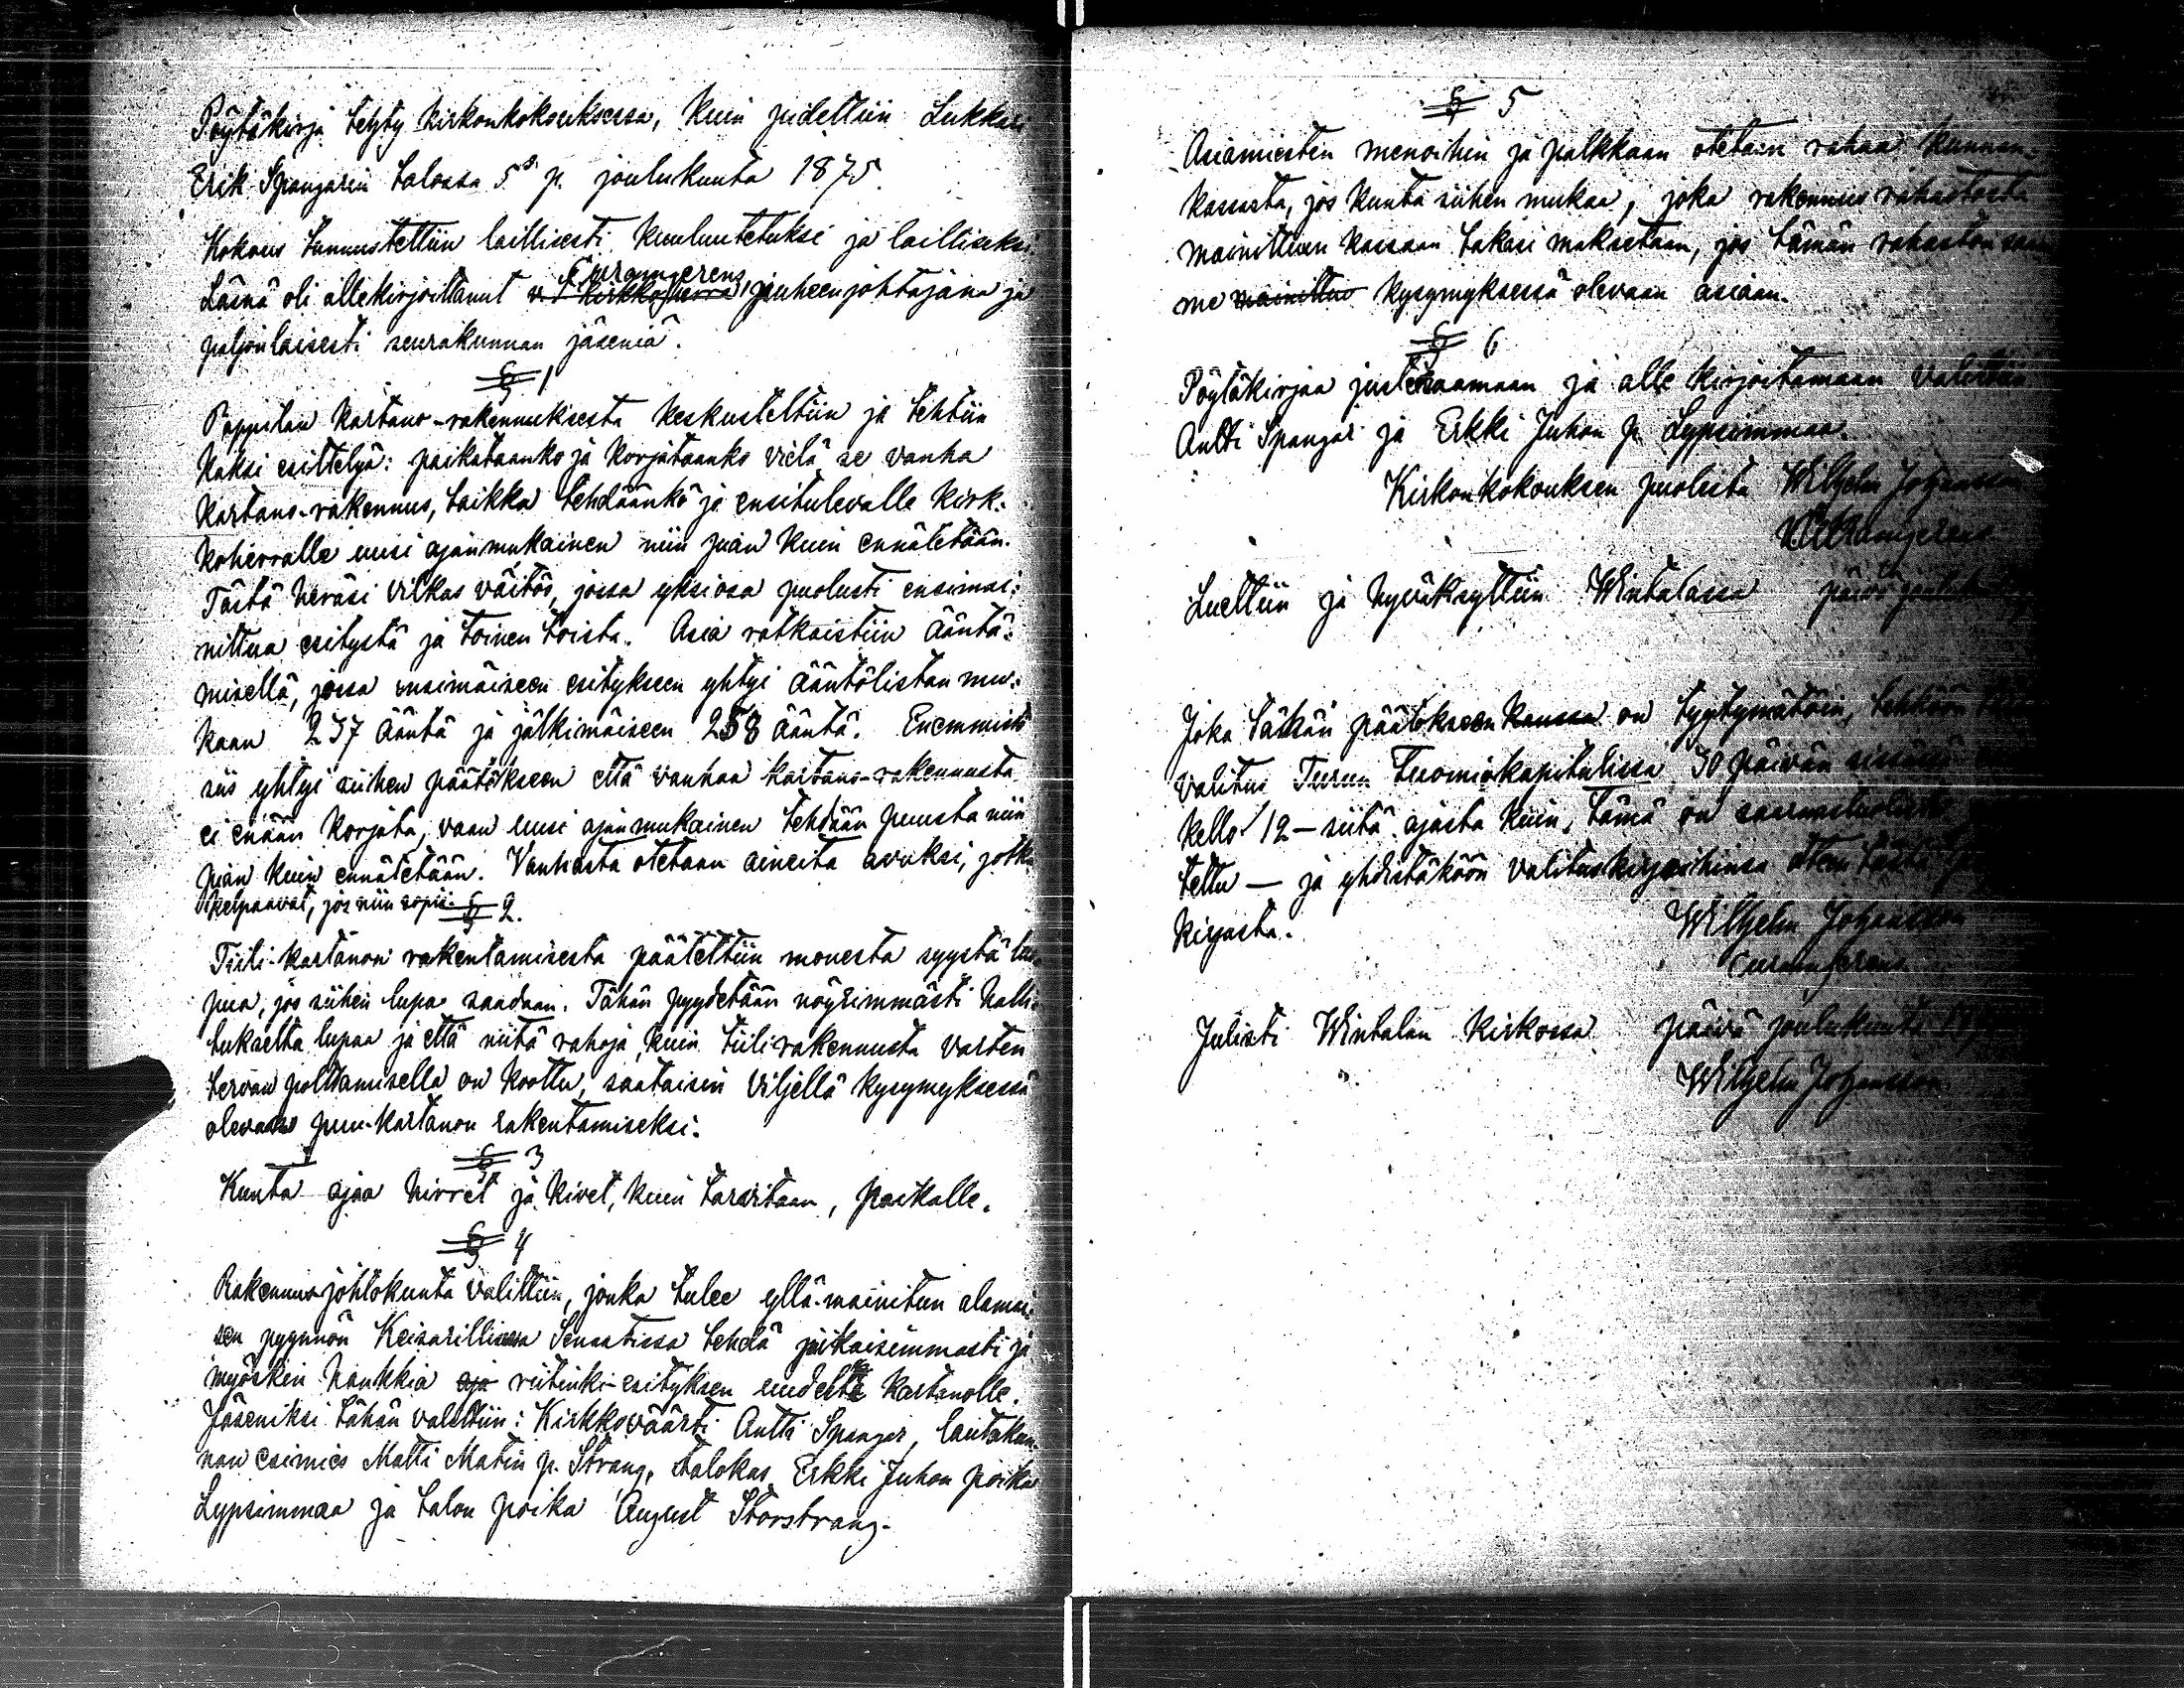 Pöytäkirja tehty kirkonkokouksessa, kuin pidettiin Lukkari
Erik Spangarin talossa 5s p. joulukuuta 1875.
Kokous tunnustettiin laillisesti kuuluutetuksi ja lailliseksi.
Läsnä oli allekirjoittanut v.t kirkkoherra, puheenjohtajana ja
Curamgerens
paljonlaisesti seurakunnan jäseniä.
§ 1
Pappilan kartano-rakennuksesta keskusteltiin ja tehtiin
kaksi esittelyä: paikataanko ja korjataanko vielä se vanha
kartano-rakennus, taikka tehdäänkö ja ensitulevalle kirk-
koherralle uusi ajanmukainen niin pian kuin ennätetään.
Tästä heräsi vilkas väitös, jossa yksi osa puolusti ensimai-
nittua esitystä ja toinen toista. Asia ratkaistiin ääntä-
misellä, jossa ensimäiseen esitykseen yhtyi ääntölistan mu-
kaan 237 ääntä ja jälkimäiseen 258 ääntä. Enemmistö
siis yhtyi siihen päätökseen että vanhaa kartano-rakennusta
ei enään korjata, vaan uusi ajanmukainen tehdään puusta niin
pian kuin ennätetään. Vanhasta otetaan aineita avuksi, jotka
kelpaavat, jos niin sopii.
§ 2.
Tiili-kartanon rakentamisesta päätettiin monesta syystä luo-
pua, jos siihen lupa saadaan. Tähän pyydetään nöyrimmästi halli-
tukselta lupaa ja että niitä rahoja, kuin tiilirakennusta varten
tervan polttamisella on koottu, saataisiin viljellä kysymyksessä
olevan puu-kartanon rakentamiseksi.
§ 3
Kunta ajaa hirret ja kivet, kuin tarvitaan, paikalle.
§ 4
Rakennusjohtokunta valittiin, jonka tulee yllä-mainitun alamai-
sen pyynnön Keisarillisessa Senaatissa tehdä pikaisimmasti ja
myöskin hankkia aja riitinki-esityksen uudelle kartanolle.
Jäseniksi tähän valittiin: Kirkkoväärti Antti Spangar, lautakun-
nan esimies Matti Matin p. Strang, talokas Erkki Juhon poika
Lypsinmaa ja talon poika August Storstrang.
§ 5
Asiamiesten menoihin ja palkkaan otetaan rahaa kunnan-
kassasta, jos kunta siihen mukaa, joka rakennus rahastosta
mainittuun kassaan takasi maksetaan, jos tämän rahaston saa-
me mainittuo kysymyksessä olevaan asiaan.
§ 6
Pöytäkirjaa justeeraamaan ja alle kirjoitamaan valittiin
Antti Spangar ja Erkki Juhon p. Lypsinmaa.
Kirkonkokouksen puolesta Wilhelm Johansson
Luettiin ja hyväksyttiin Wintalassa päivä
Joka tähän päätökseen kanssa on tyytymätöin, tehköön
valitus Turun Tuomiokapitulissa 30 päivän sisässä
kello 12 – siitä ajasta kuin, tämä on
tettu – ja yhdistäköön valituskirjaihinsa
kirjasta.
Wilhelm Johansson
Curamgerens
Julisti Wintalan kirkossa päivä joulukuuta
Wilhelm Johansson